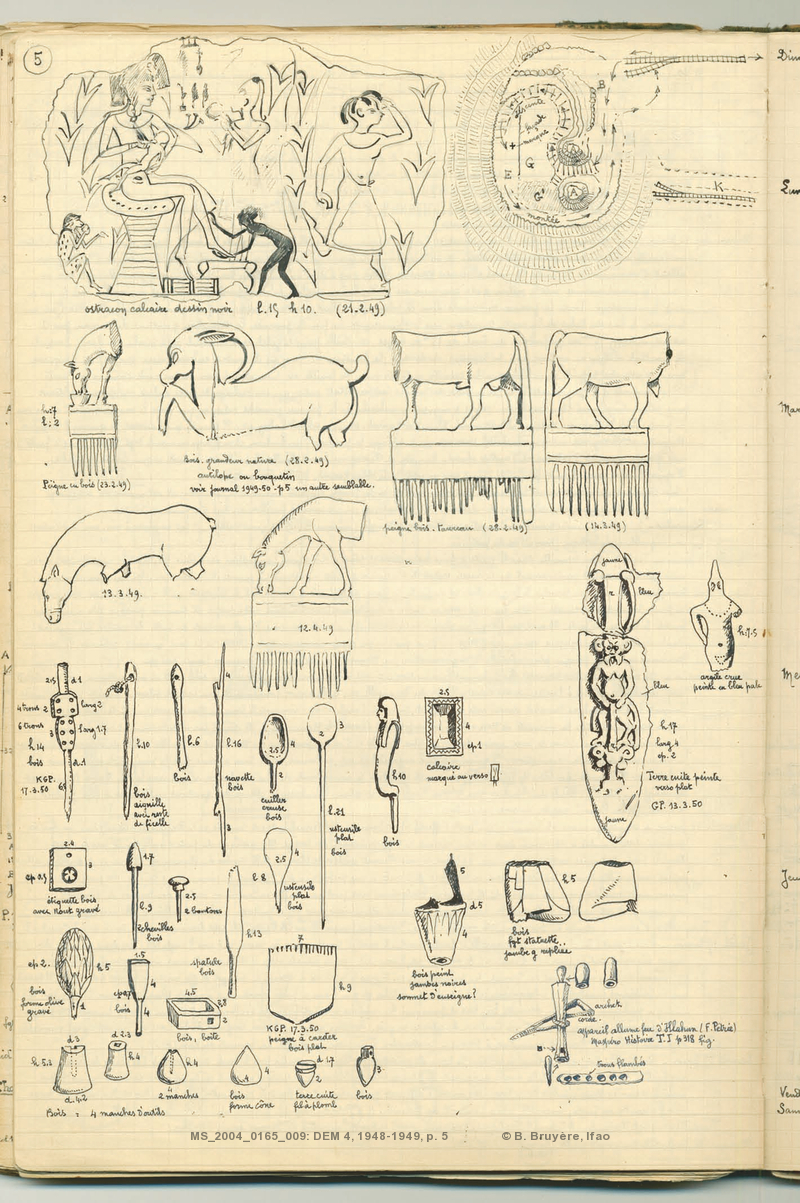 5
enceinte
B
G
E
G'
A
K
montée
ostracon calcaire dessin noir l. 15 h 10. (21-2.49)
h: 7
l: 2
Peigne en bois (23.2.49)
Bois. grandeur nature (28.2.49)
antilope ou bouquetin
voir journal 1949-50 p 5 un autre semblable.
peigne bois. taureau (28.2.49)
(14.3.49)
13.3.49.
12.4.49
jaune
r
bleu
bleu
h 17
larg 4
ep. 2
Terre cuite peinte
verso plat
GP. 13.3.50
jaune
h: 7.5
argile crue
peinte en bleu pale
2.5
d 1
4 trous
2
larg 2
6 trous
3
larg 1.7
h 14
bois
d. 1
KGP.
17.3.50
6
l. 10
bois
aiguille
avec reste
de ficelle
l. 6
bois
4
l. 16
navette
bois
3
2.5
4
2
cuiller
creuse
bois
2
3
l. 21
ustensile
plat
bois
h 10
bois
2.5
4
ep. 1
calcaire
marqué au verso
2.4
3
ep 0.5
étiquette bois
avec trout gravé
1.7
l. 9
2 chevilles
bois
2.5
2 boutons
h 13
spatule
bois
2.5
4
l 8
ustensile
plat
bois
5
d 5
4
bois peint
jambes noires
sommet d'enseigne?
h 5
bois
fgt statuette..
jambe g repliée
ep 2.
h 5
1
bois
forme olive
gravé
1.5
4
bois
4
4.5
2.8
2
bois, boîte
7
h 9
KGP. 17.3.50
peigne à carder
bois plat
archet
corde.
appareil allume feu d'Illahun (F. Petrie)
Maspero Histoire T. I p 318 fig.
B
trous flambés
d 3
h 5.3
d. 4.2
d 2.3
h 4
Bois : 4 manches d'outils
h 4
2 manches
4
bois
forme cône
d 1.7
2
terre cuite
fil à plomb
3
bois
MS_2004_0165_009: DEM 4, 1948-1949, p. 5 © B. Bruyère, Ifao